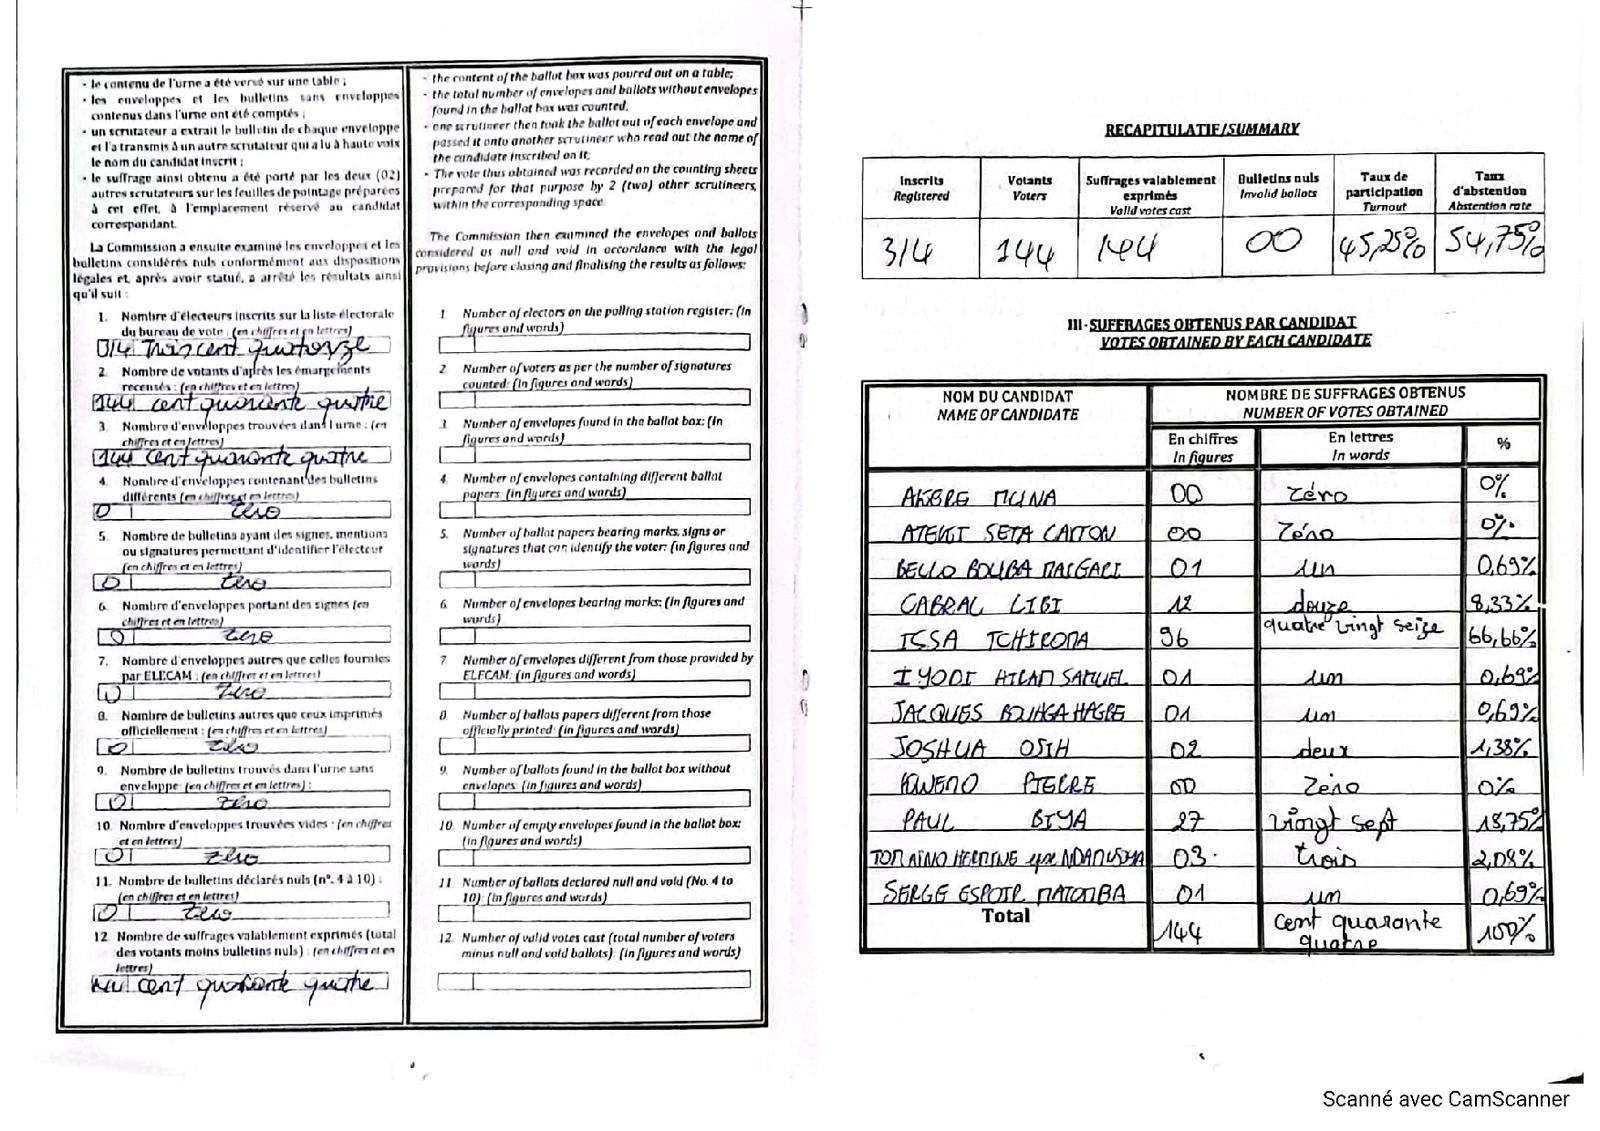 - le contenu de l'urne a été versé sur une table ;
- les enveloppes et les bulletins sans enveloppes
contenus dans l'urne ont été comptés ;
- un scrutateur a extrait le bulletin de chaque enveloppe
et l'a transmis à un autre scrutateur qui a lu à haute voix
le nom du candidat inscrit ;
- le suffrage ainsi obtenu a été porté par les deux (02)
autres scrutateurs sur les feuilles de pointage préparées
à cet effet, à l'emplacement réservé au candidat
correspondant.
La Commission a ensuite examiné les enveloppes et les
bulletins considérés nuls conformément aux dispositions
légales et, après avoir statué, a arrêté les résultats ainsi
qu'il suit :
1. Nombre d'électeurs inscrits sur la liste électorale
du bureau de vote : (en chiffres et en lettres)
314 Trois cent quatorze
2. Nombre de votants d'après les émargements
recensés : (en chiffres et en lettres)
144 cent quarante quatre
3. Nombre d'enveloppes trouvées dans l'urne : (en
chiffres et en lettres)
144 cent quarante quatre
4. Nombre d'enveloppes contenant des bulletins
différents (en chiffres et en lettres)
0 zéro
5. Nombre de bulletins ayant des signes, mentions
ou signatures permettant d'identifier l'électeur
(en chiffres et en lettres)
0 zéro
6. Nombre d'enveloppes portant des signes (en
chiffres et en lettres)
0 zéro
7. Nombre d'enveloppes autres que celles fournies
par ELECAM : (en chiffres et en lettres)
0 zéro
8. Nombre de bulletins autres que ceux imprimés
officiellement : (en chiffres et en lettres)
0 zéro
9. Nombre de bulletins trouvés dans l'urne sans
enveloppe (en chiffres et en lettres) :
0 zéro
10. Nombre d'enveloppes trouvées vides : (en chiffres
et en lettres)
0 zéro
11. Nombre de bulletins déclarés nuls (n°. 4 à 10) :
(en chiffres et en lettres)
0 zéro
12. Nombre de suffrages valablement exprimés (total
des votants moins bulletins nuls) : (en chiffres et en
lettres)
144 cent quarante quatre
- the content of the ballot box was poured out on a table;
- the total number of envelopes and ballots without envelopes
found in the ballot box was counted,
- one scrutineer then took the ballot out of each envelope and
passed it onto another scrutineer who read out the name of
the candidate inscribed on it;
- The vote thus obtained was recorded on the counting sheets
prepared for that purpose by 2 (two) other scrutineers,
within the corresponding space
The Commission then examined the envelopes and ballots
considered as null and void in accordance with the legal
provisions before closing and finalising the results as follows:
1 Number of electors on the polling station register: (in
figures and words)
2. Number of voters as per the number of signatures
counted: (in figures and words)
3. Number of envelopes found in the ballot box: (in
figures and words)
4. Number of envelopes containing different ballot
papers: (in figures and words)
5. Number of ballot papers bearing marks, signs or
signatures that can identify the voter: (in figures and
words)
6. Number of envelopes bearing marks: (in figures and
words)
7 Number of envelopes different from those provided by
ELECAM: (in figures and words)
8. Number of ballots papers different from those
officially printed: (in figures and words)
9. Number of ballots found in the ballot box without
envelopes: (in figures and words)
10. Number of empty envelopes found in the ballot box:
(in figures and words)
11 Number of ballots declared null and void (No. 4 to
10): (in figures and words)
12. Number of valid votes cast (total number of voters
minus null and void ballots): (in figures and words)
RECAPITULATIF/SUMMARY
Inscrits Registered
Votants Voters
Suffrages valablement exprimés Valid votes cast
Bulletins nuls Invalid ballots
Taux de participation Turnout
Taux d'abstention Abstention rate
314 144 144 00 45,25% 54,75%
III-SUFFRAGES OBTENUS PAR CANDIDAT
VOTES OBTAINED BY EACH CANDIDATE
NOM DU CANDIDAT NOMBRE DE SUFFRAGES OBTENUS
NAME OF CANDIDATE NUMBER OF VOTES OBTAINED
En chiffres En lettres %
In figures In words
AKERE MUNA 00 Zéro 0%
ATEKI SETA CAXTON 00 Zéro 0%
BELLO BOUBA MAIGARI 01 un 0,69%
CABRAL LIBI 12 douze 8,33%
ISSA TCHIROMA 96 quatre vingt seize 66,66%
IYODI HIRAM SAMUEL 01 un 0,69%
JACQUES BOUHGA HAGBE 01 un 0,69%
JOSHUA OSIH 02 deux 1,38%
KWEMO PIERRE 00 Zéro 0%
PAUL BIYA 27 vingt sept 18,75%
TOMAINO HERMINE epse NDAM NJOYA 03 trois 2,08%
SERGE ESPOIR MATOMBA 01 un 0,69%
Total 144 cent quarante quatre 100%
Scanné avec CamScanner